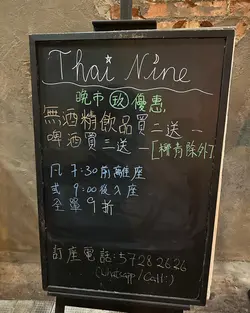 Thai Nine
晚市 致 優惠
無酒精飲品買二送一
啤酒買三送一 [樽青除外]
凡 7:30前離座
或 9:00後入座
全單9折
訂座電話:57282626
(Whatsapp/Call:)